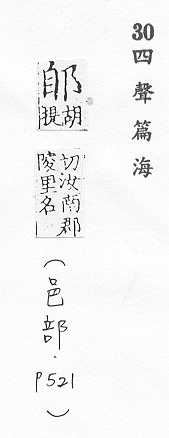 30四聲篇海
郋胡提切汝南郡陵里名(邑部.P521)